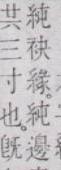 純袂緣。純邊
共三寸也。旣